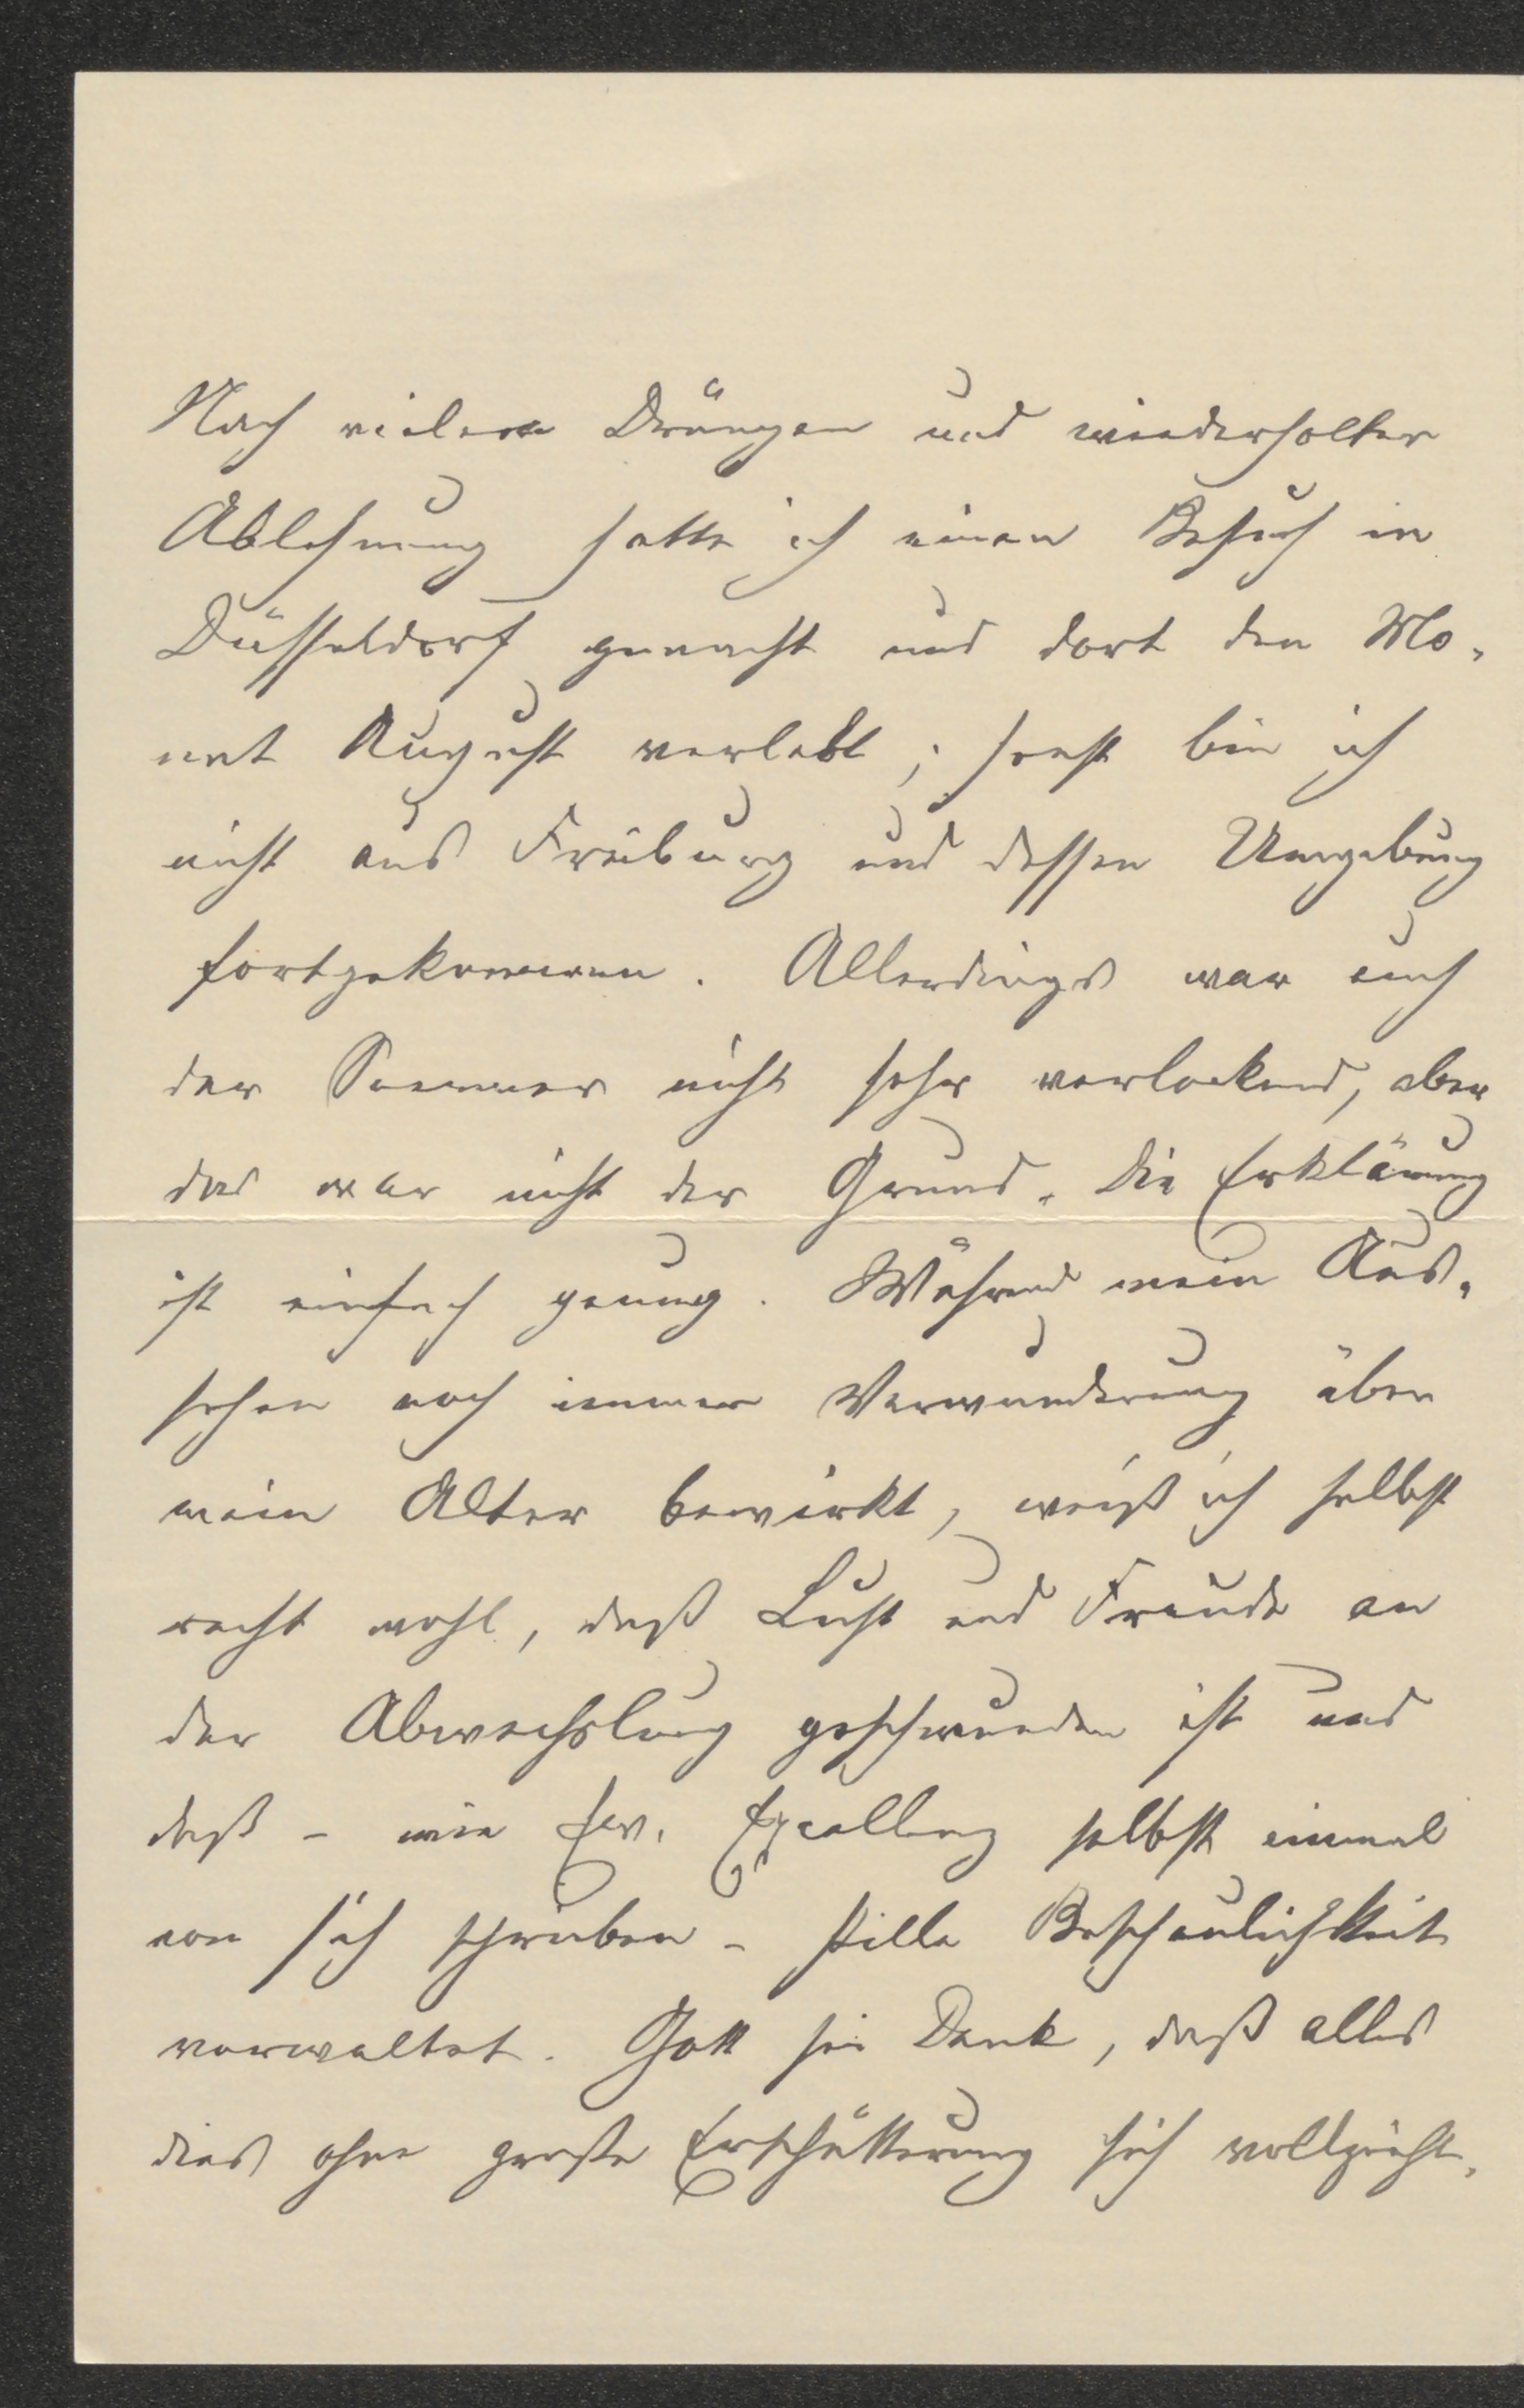 Nach vielem Drängen und wiederholter
Ablehnung hatte ich einen Besuch in
Düsseldorf gemacht und dort den Mo-
nat August verlebt; sonst bin ich
nicht aus Freiburg und dessen Umgebung
fortgekommen. Allerdings war auch
der Sommer nicht sehr verlockend, aber
das war nicht der Grund. Die Erklärung
ist einfach genug. Während mein Aus-
sehen noch immer Verwunderung über
mein Alter bewirkt, weiß ich selbst
recht wohl, daß Lust und Freude an
der Abwechslung geschwunden ist und
daß – wie Ew. Excellenz selbst einmal
von sich schrieben – stille Beschaulichkeit
vorwaltet. Gott sei Dank, daß alles
dies ohne große Erschütterung sich vollzieht.